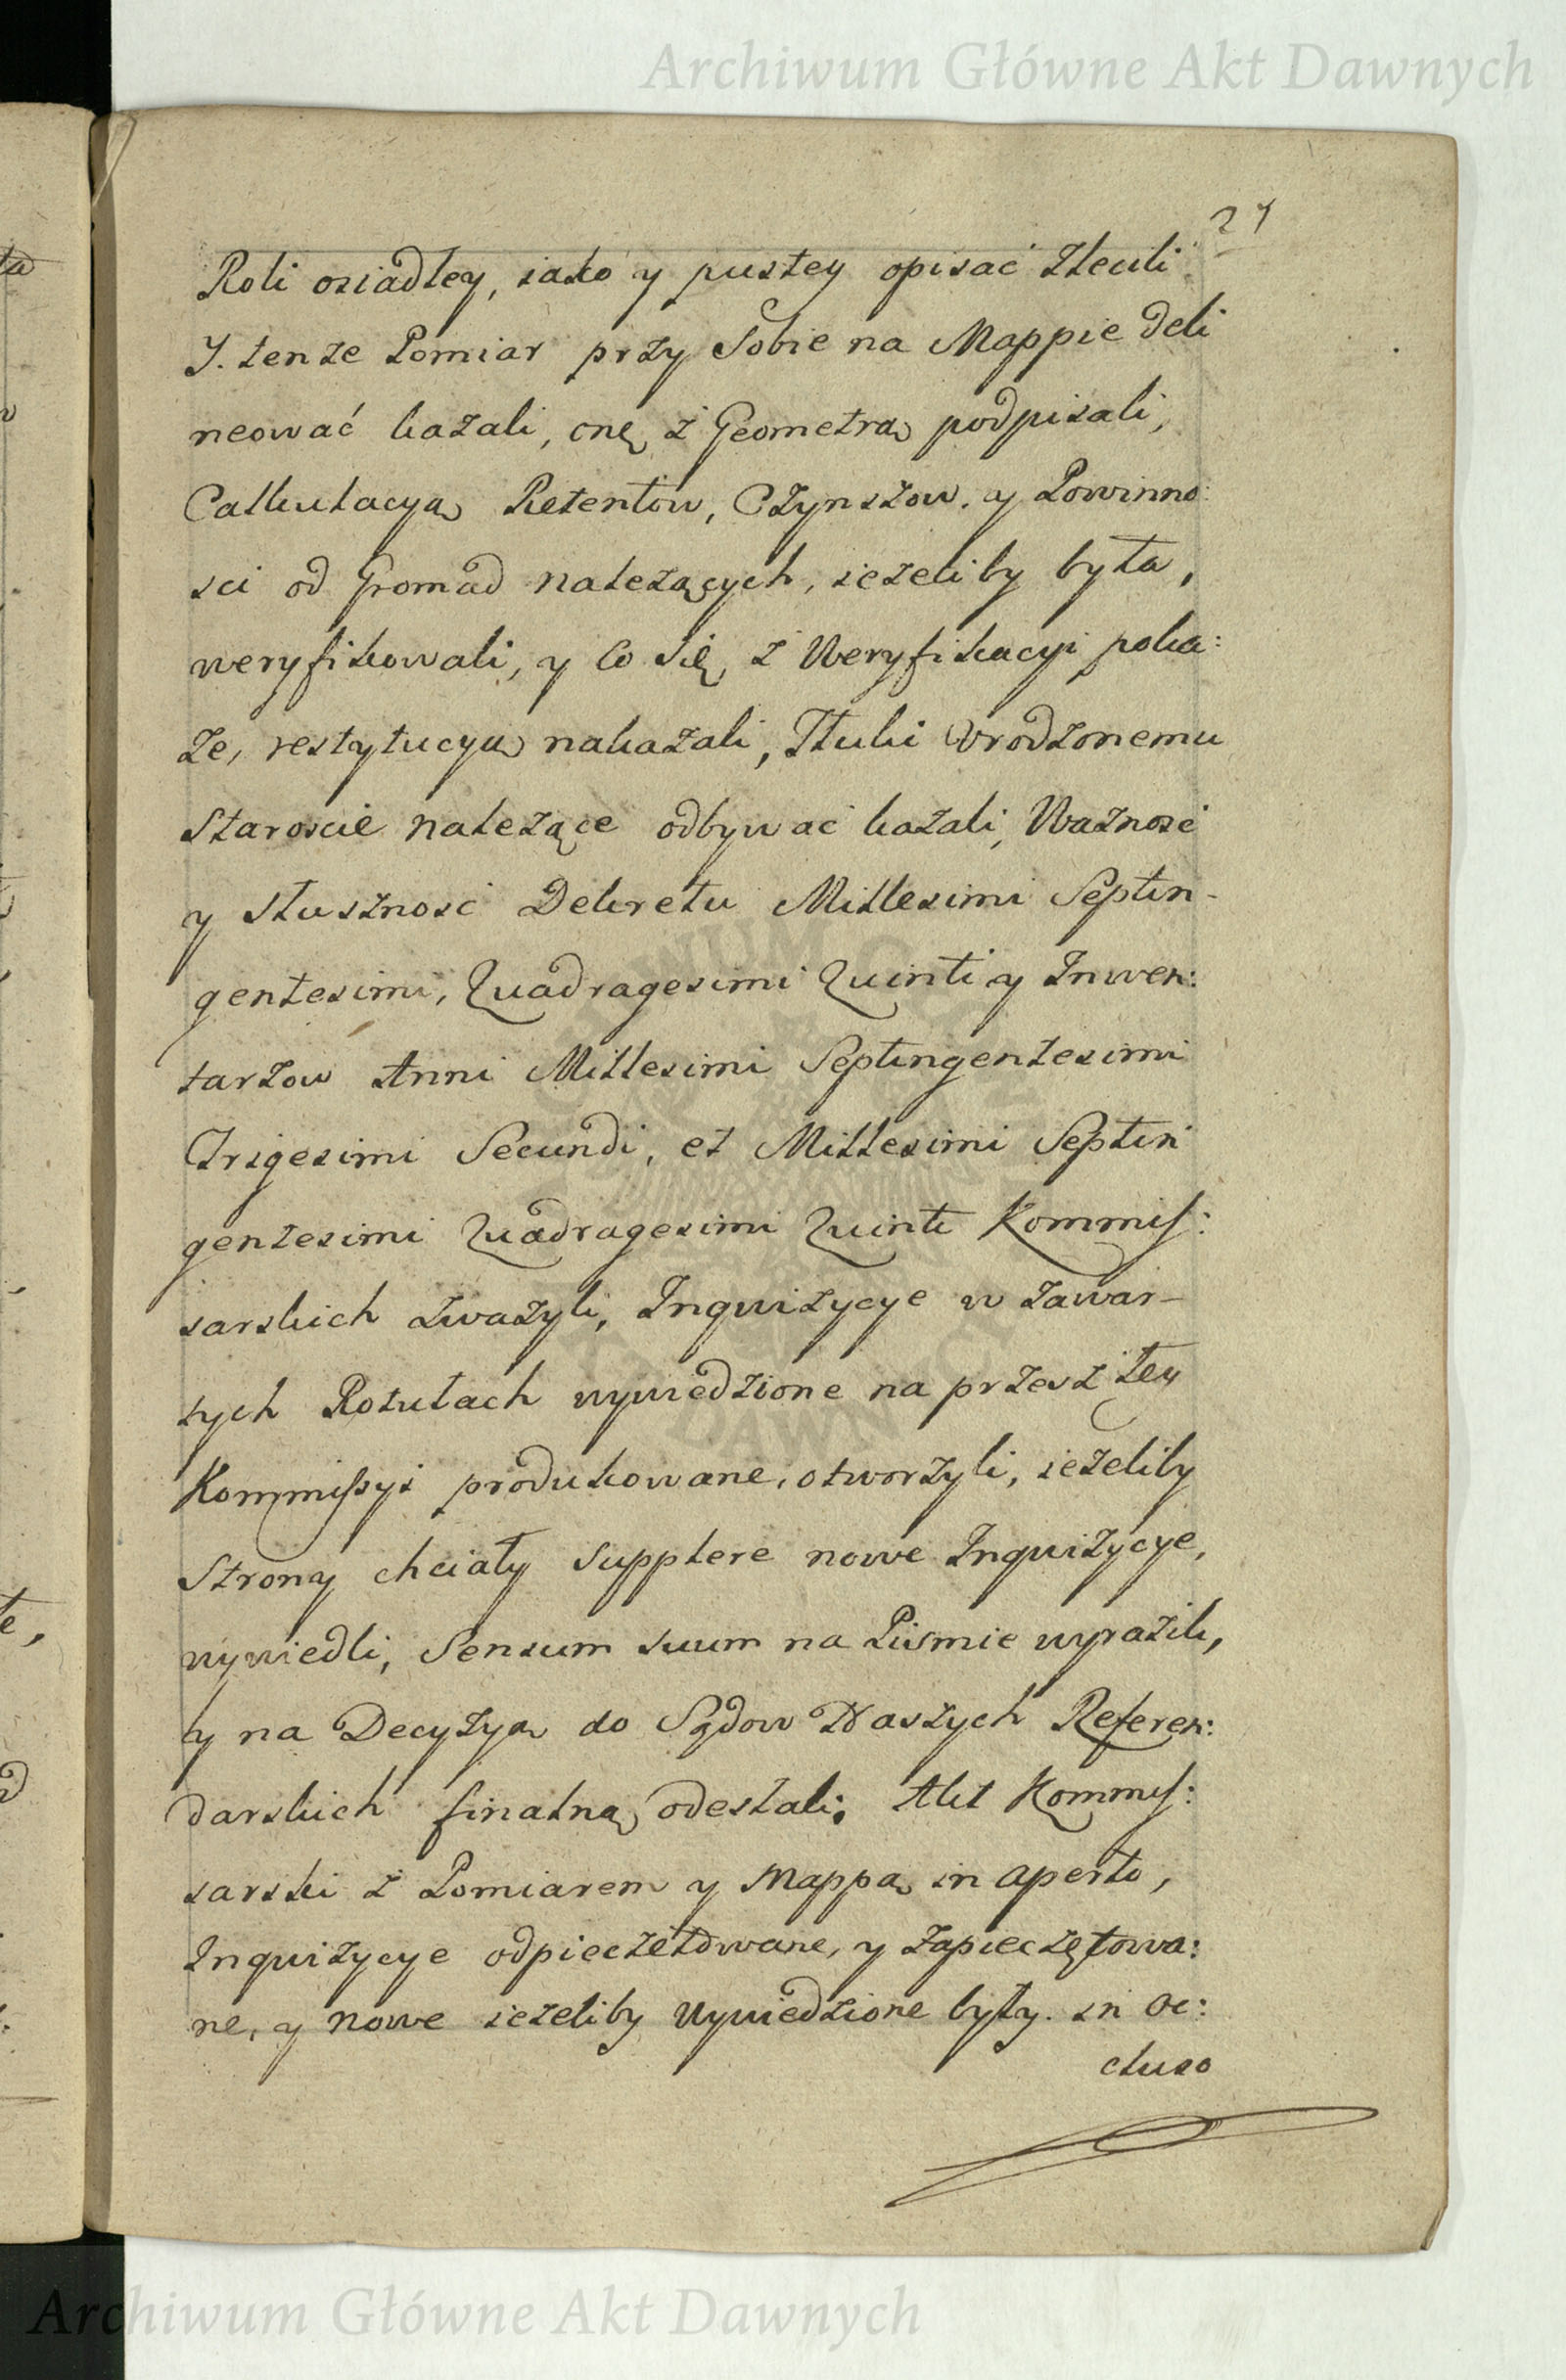 Archiwum Główne Akt Dawnych
27
Roli osiadłey, iako y pustey opisać zlecili
Y. tenze Pomiar przy Sobie na Mappie deli
neować kazali, onę z Geometrą podpisali,
Calkulacyą Retentow, Czynszow, y Powinno:
sci od Gromad nalezących, iezeliby była,
weryfikowali, y co się z Weryfikacyi poka:
ze, restytucyą nakazali, Tłuki Urodzonemu
Staroscie nalezące odbywać kazali, Waznosć
y słusznosć Dekretu Millesimi Septin-
gentesimi, Quadragesimi Quinti y Inwen:
tarzow Anni Millesimi Septingentesimi
Trigesimi Secundi, et Millesimi Septin
gentesimi Quadragesimi Quinti Kommis:
sarskich zwazyli, Inquizycye w zawar-
tych Rotułach wywiedzione na przeszłey
Kommissyi produkowane, otworzyli, iezeliby
Strony chciały supplere nowe Inquizycye,
wywiedli, Sensum suum na Pismie wyrazili,
y na Decyzyą do Sądow Naszych Referen:
darskich finalną odesłali; Akt Kommis:
sarski z Pomiarem y Mappą in aperto,
Inquizycye odpieczętowane, y zapieczętowa:
ne, y nowe iezeliby wywiedzione były in oc:
cluso
Archiwum Główne Akt Dawnych